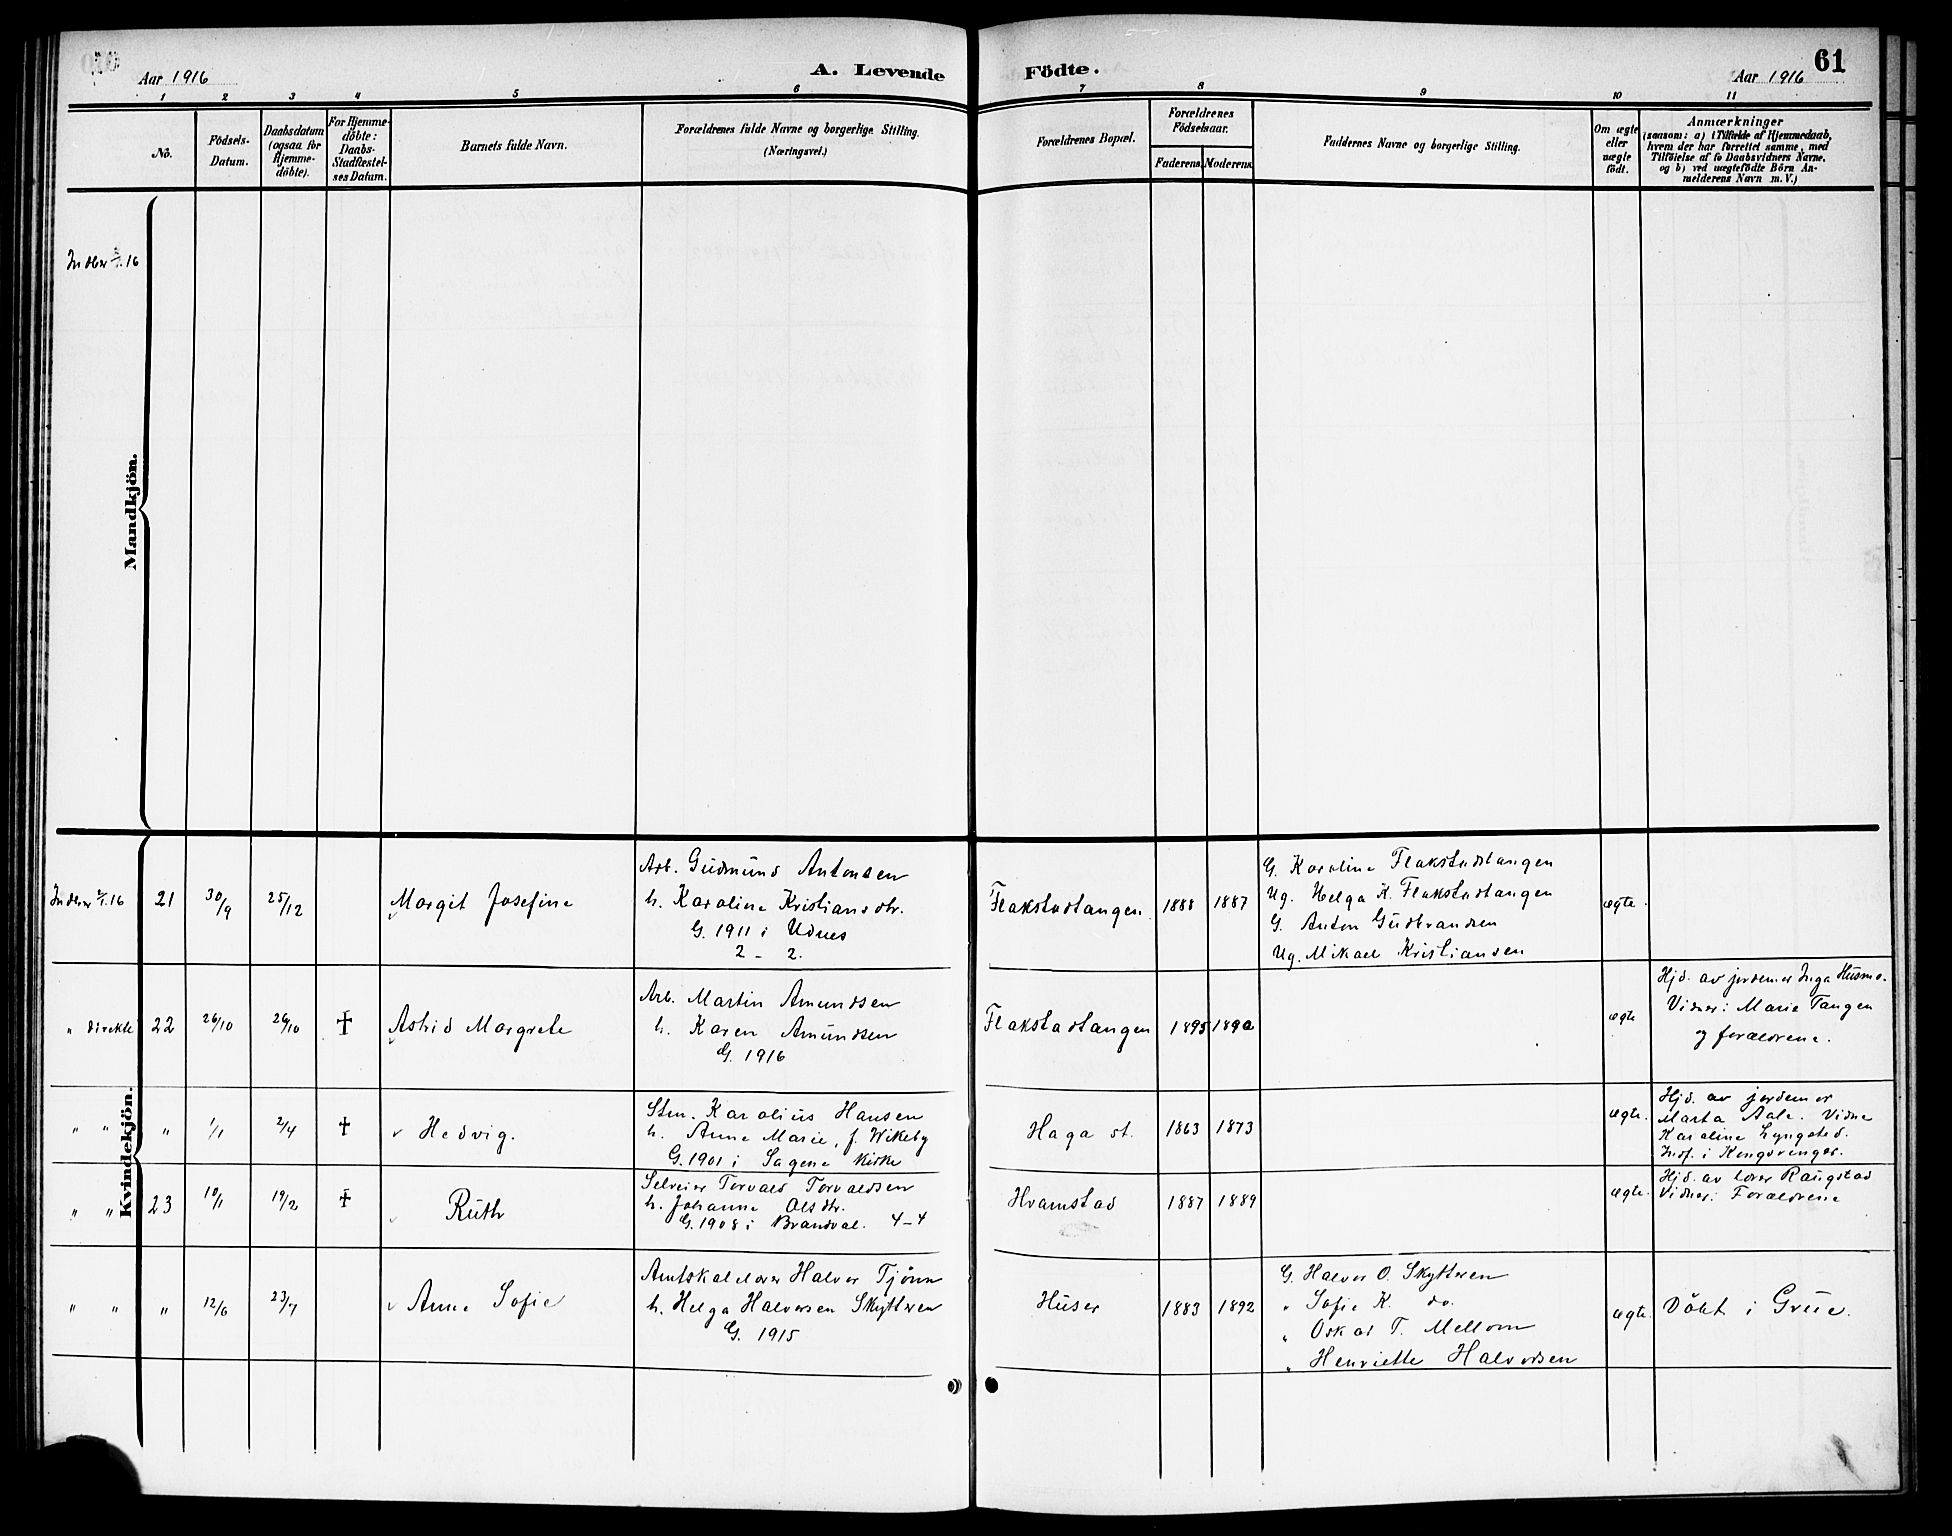 Aar 1916
A. Levende Födte.
Aar 1916
61
1 2 3 4 5 6 7 8 9 10 11
No.
Födsels-
Datum.
Daabsdatum
(ogsaa for
Hjemme-
döbte).
For Hjemme-
döbte:
Daabs-
Stadfæstel-
ses Datum.
Barnets fulde Navn.
Forældrenes fulde Navne og borgerlige Stilling.
(Næringsvei.)
Forældrenes Bopæl.
Forældrenes
Födselsaar.
Faderens. Moderens.
Faddernes Navne og borgerlige Stilling.
Om ægte
eller
uægte
födt.
Anmærkninger
(saasom: a) i Tilfælde af Hjemmedaab,
hvem der har forrettet samme, med
Tilföielse af to Daabsvidners Navne,
og b) ved uægtefödte Börn An-
melderens Navn m. V.)
Mandkjön.
Kvindekjön.
21
30/9
25/12
Margit Josefine
Arb. Gudmund Antonsen
h. Karoline Kristiansdtr.
G. 1911 i Udnes
2 - 2.
Flakstadtangen
1888 1887
G. Karoline Flakstadtangen
Ug. Helga K. Flakstadtangen
G. Anton Gudbrandsen
Ug. Mikael Kristiansen
ægte
" direkte
22
26/10
26/10
Astrid Margrete
Arb. Martin Amundsen
h. Karen Amundsen
G. 1916
Flakstadtangen
1895 1890
ægte
Hjd. av jordemor Inga Husmo.
Vidner: Marie Tangen
og forældrene.
" " "
1/1
2/4
Hedvig.
Stm. Karolius Hansen
h. Anne Marie, f. Wikeby
G. 1901 i Sagene Kirke
Haga st.
1863 1873
ægte.
Hjd. av jordemor
Marta Aale. Vidne
Karoline Lyngstad.
Indf. i Kongsvinger.
" "
23
10/1
19/2
Ruth
Selveier Torvald Torvaldsen
h. Johanne Olsdtr.
G. 1908 i Brandval. 4-4
Hvamstad
1887 1889
ægte.
Vidner: Forældrene
" " "
12/6
23/7
Anne Sofie
Halvor Tjönn
h. Helga Halvorsen Skytteren
G. 1915
Huser
1883 1892
G. Halvor O. Skytteren
" Sofie K. do.
" Oskar T. Mellom
" Henriette Halvorsen
ægte.
Döbt i Grue.